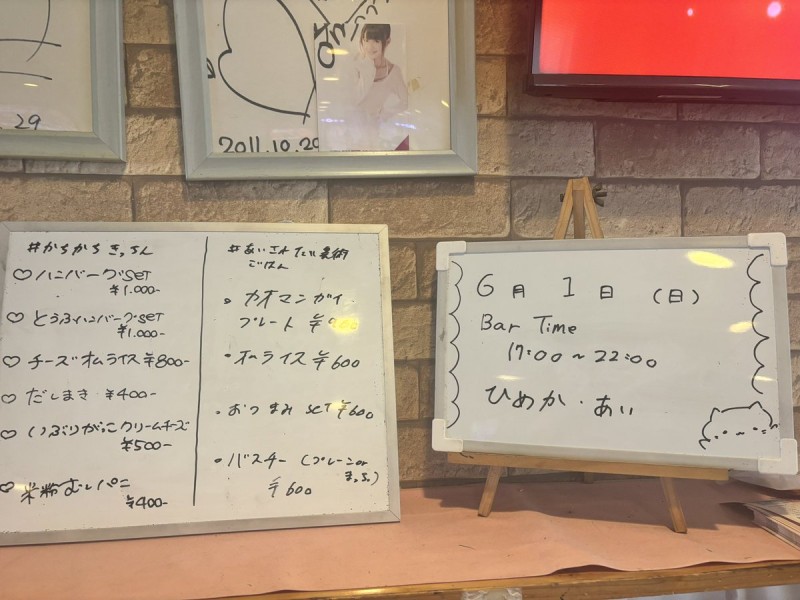 .29
2011.10.29
#かちかちきっちん
♡ハンバーグSET
¥1.000-
♡とうふハンバーグSET
¥1.000-
♡チーズオムライス¥800-
♡だしまき ¥400-
♡いぶりがっこクリームチーズ
¥500-
♡米粉むしパン
¥400-
ごはん
・カオマンガイ
プレート
・オムライス ¥600
・おつまみSET ¥600
・バスチー(プレーンor
¥600
6月1日(日)
Bar Time
17:00~22:00
ひめか・あい